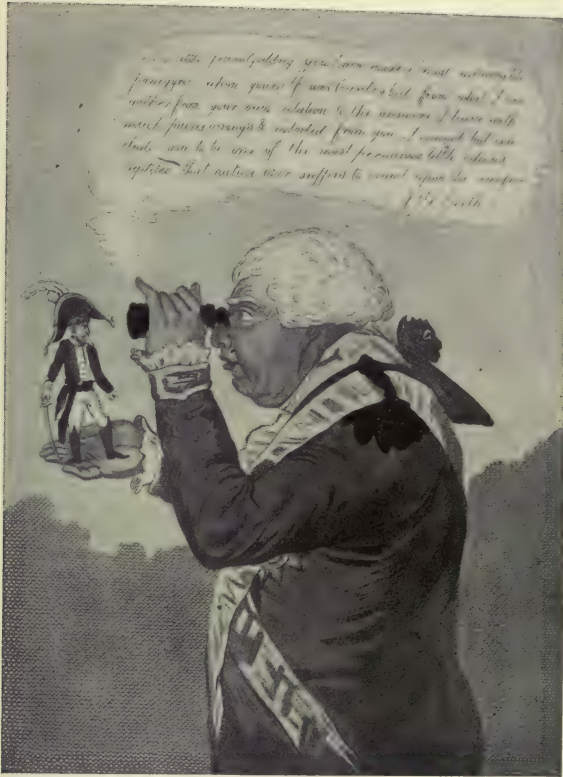 little you have made a most admirable
panegyric upon yourself and country but from what I can
gather from your own relation & the answers I have with
much pains wringed & extorted from you, I cannot but con
clude you to be one of the most pernicious little odious
reptiles that nature ever suffer'd to crawl upon the surface
of the Earth